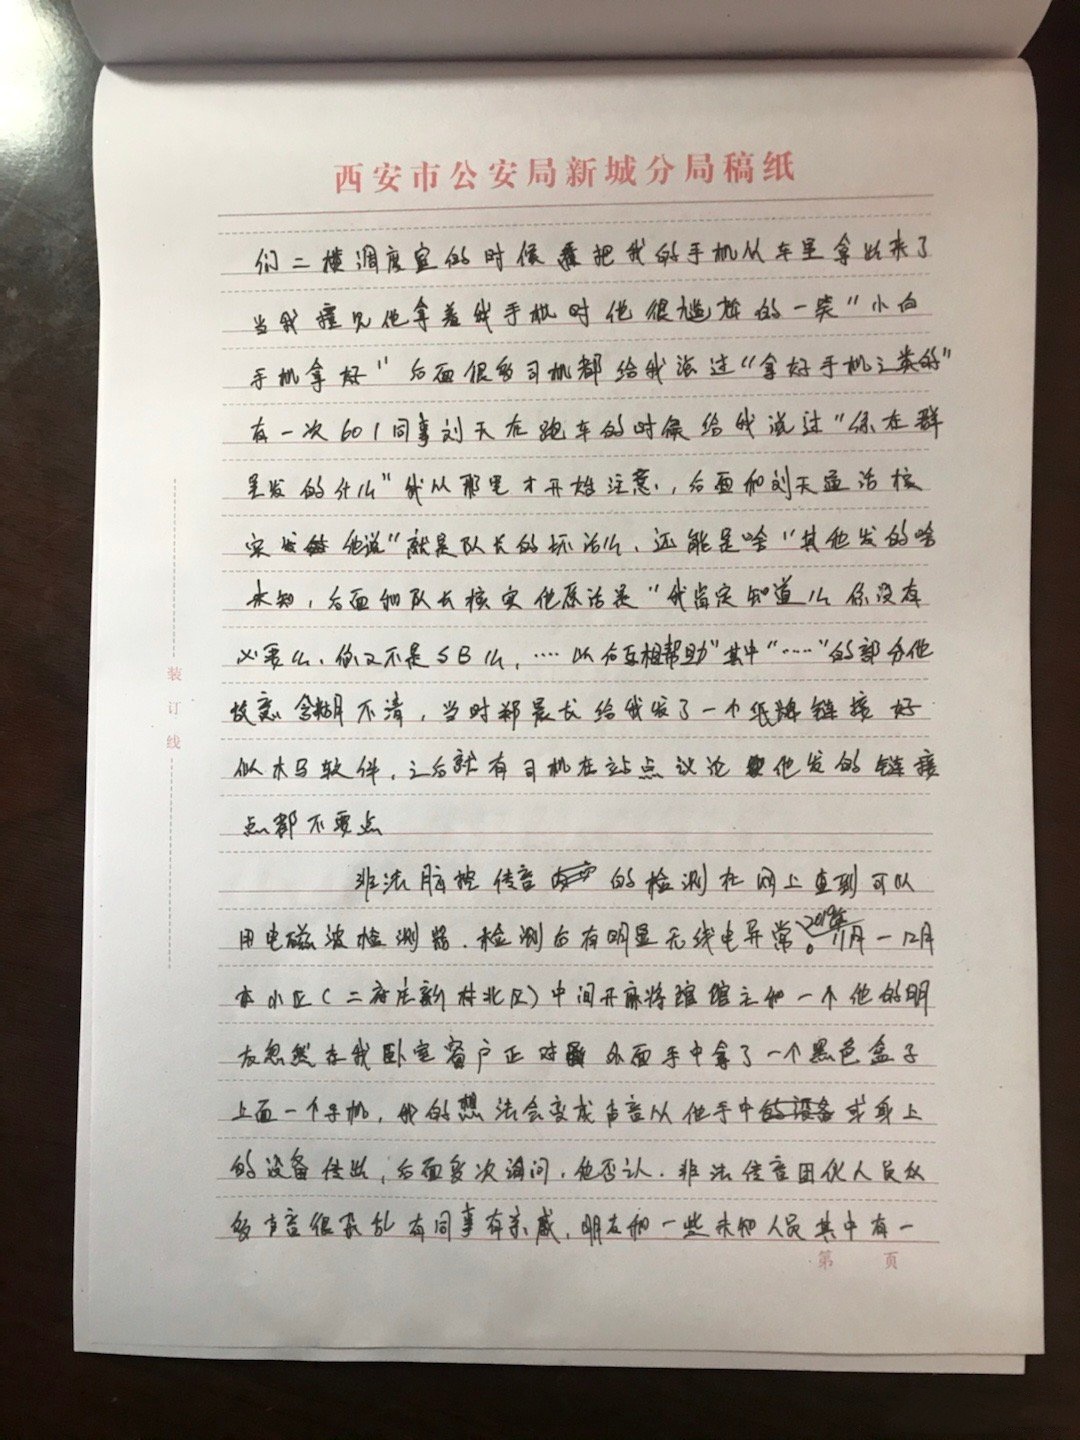 西安市公安局新城分局稿纸
们二楼调度室的时候把我的手机从车里拿出来了
当我撞见他拿着我手机时他很尴尬的一笑“小白
手机拿好”后面很多司机都给我说过“拿好手机之类的”
有一次601同事刘天在跑车的时候给我说过“你在群
里发的什么”我从那里才开始注意，后面和刘天通话核
实他说“就是队长的坏话么，还能是啥”其他发的啥
未知，后面和队长核实他原话是“我肯定知道么你没有
必要么，你又不是SB么，……以后互相帮助”其中“……”的部分他
故意含糊不清，当时郑晨长给我发了一个纸牌链接好
似木马软件，之后就有司机在站点议论他发的链接
点都不要点
非法脑控传音的检测在网上查到可以
用电磁波检测器，检测后有明显无线电异常。2019年11月—12月
本小区（二府庄新村北区）中间开麻将馆馆主和一个他的朋
友忽然在我卧室窗户正对外面手中拿了一个黑色盒子
上面一个手机，我的想法会变成声音从他手中的设备或身上
的设备传出，后面多次询问，他否认．非法传音团伙人员众
多声音很杂乱有同事有亲戚，朋友和一些未知人员其中有一
第 页
装订线